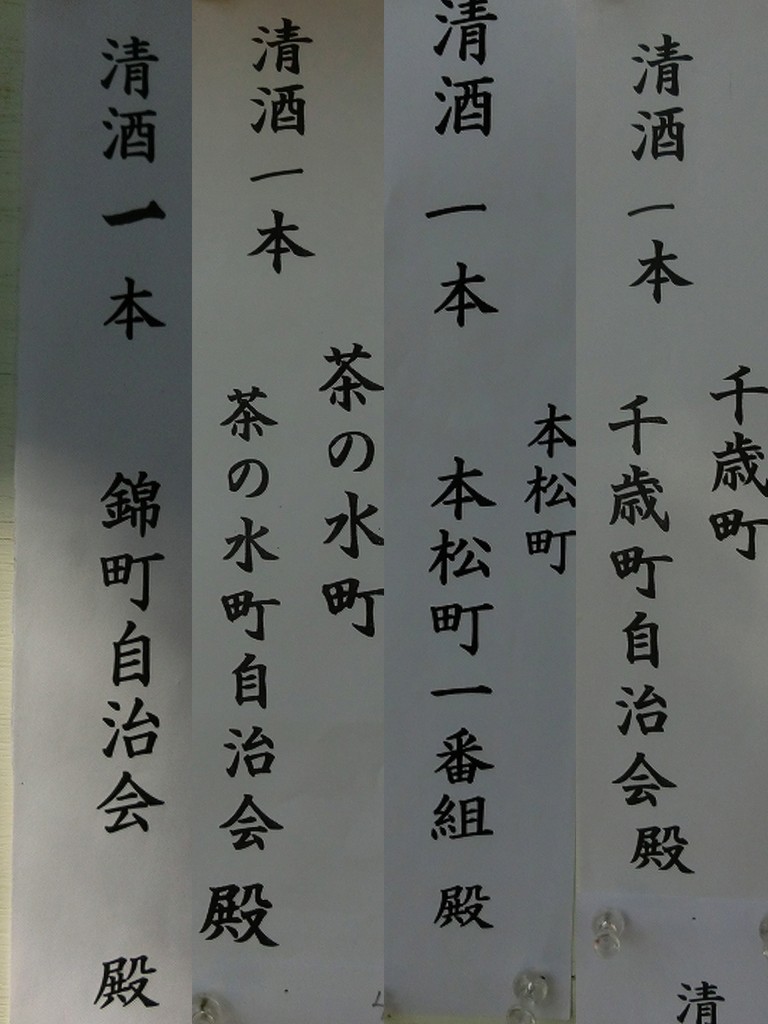 清酒一本
錦町自治会 殿
茶の水町
清酒一本
茶の水町自治会殿
本松町
清酒一本
本松町一番組 殿
千歳町
清酒一本
千歳町自治会殿
清